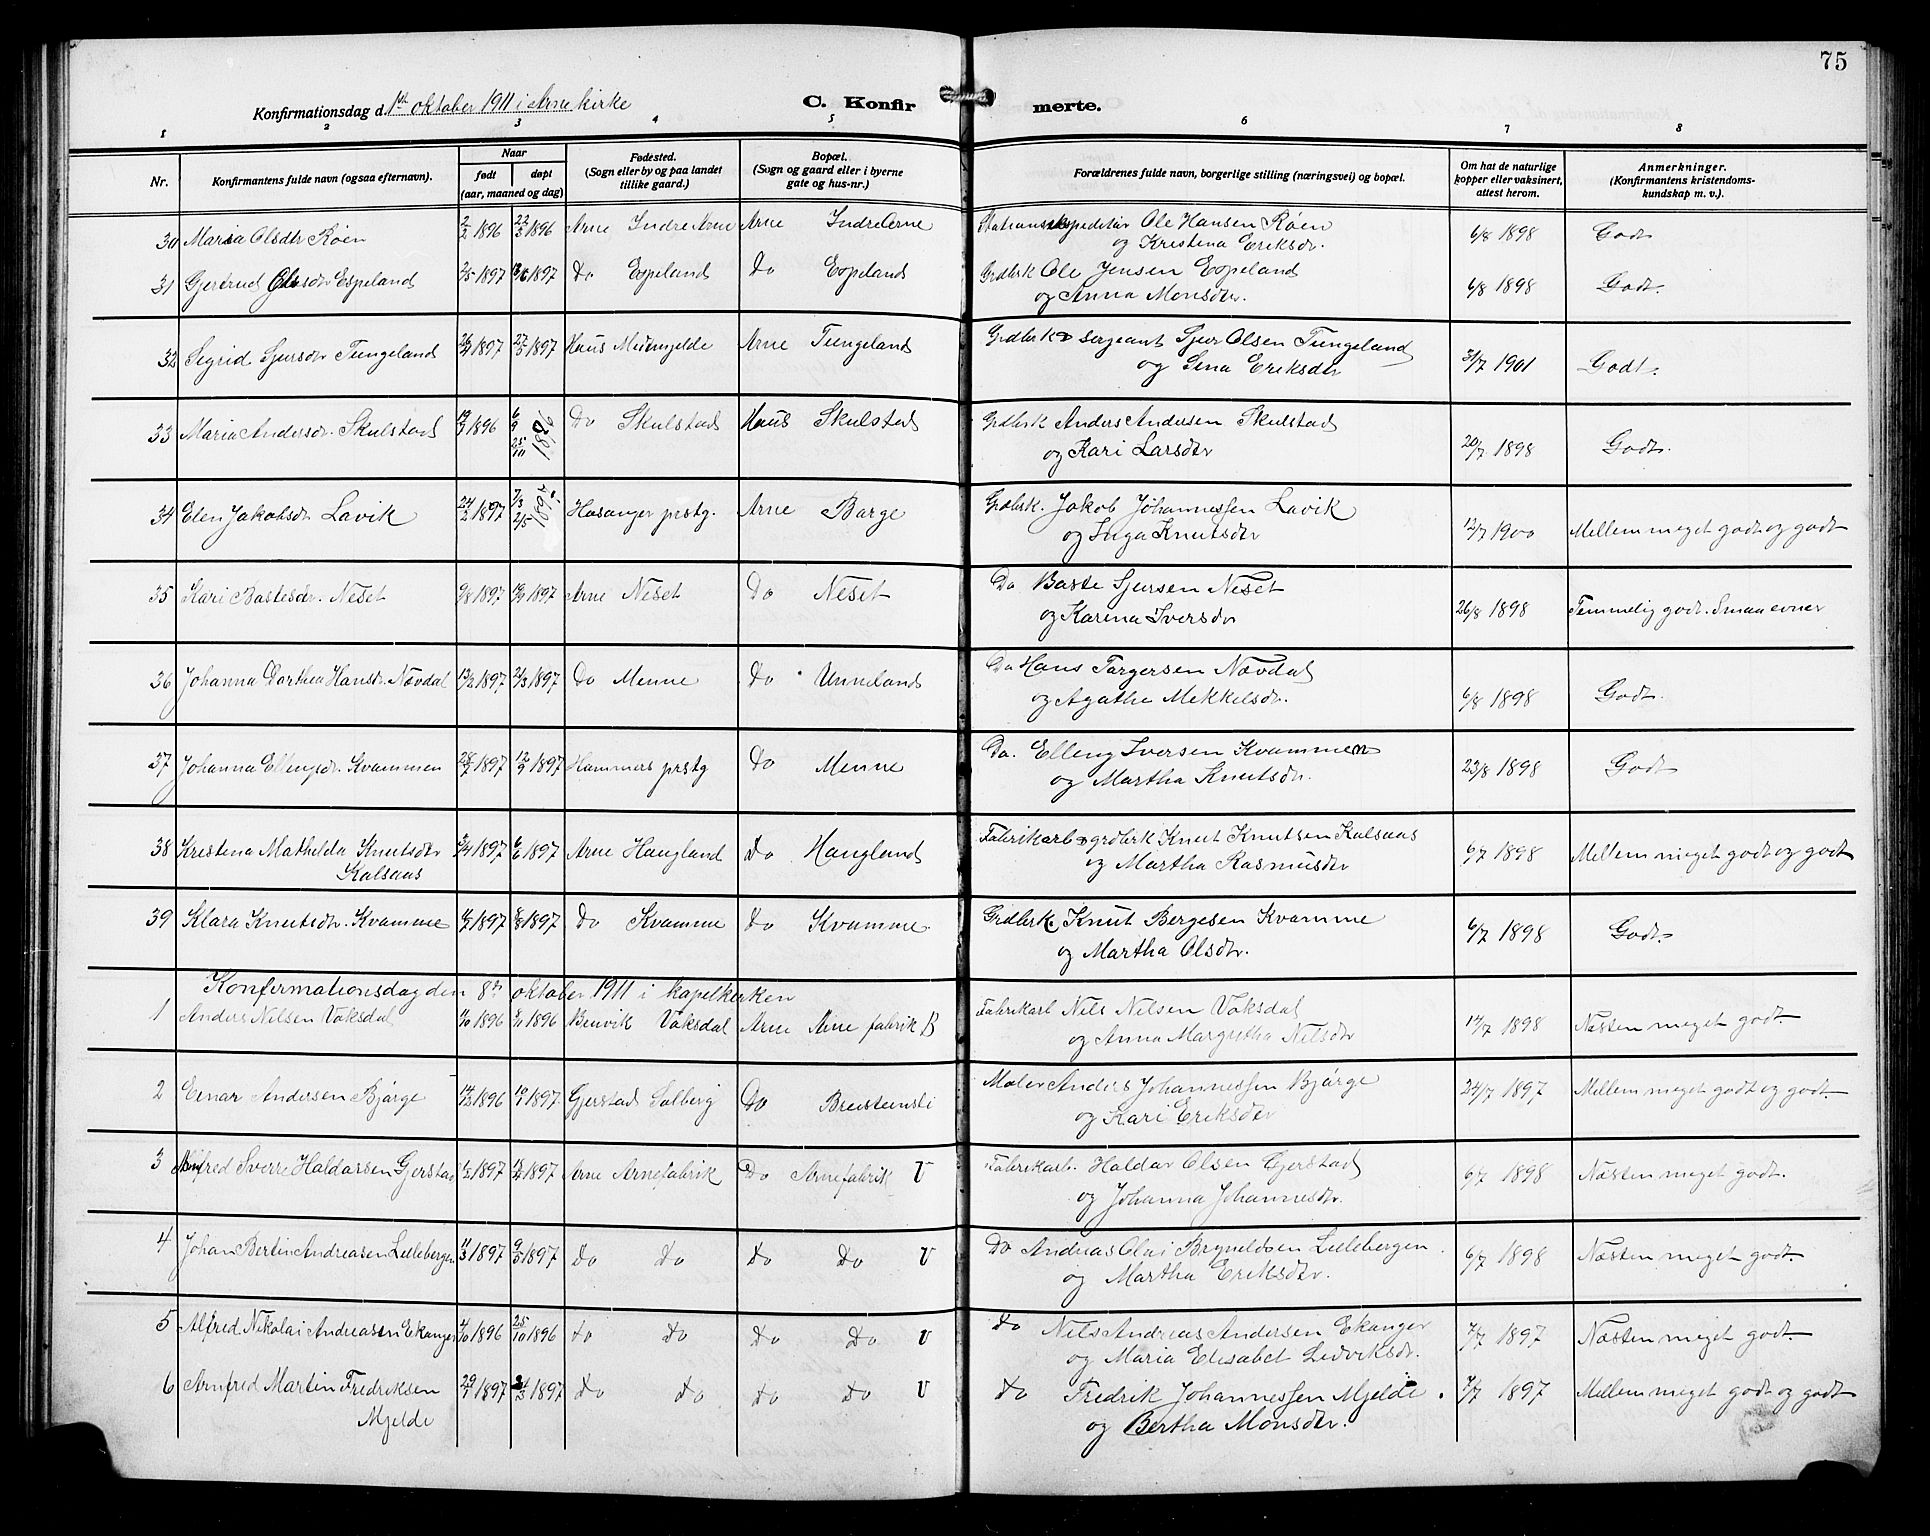 75
Konfirmationsdag d. 1ste oktober 1911 i Arne kirke C. Konfirmerte.
1 2 3 4 5 6 7 8
Nr. Konfirmantens fulde navn (ogsaa efternavn). Naar født døpt (aar, maaned og dag) Fødested. (Sogn eller by og paa landet tillike gaard.) Bopæl. (Sogn og gaard eller i byerne gate og hus-nr.) Forældrenes fulde navn, borgerlige stilling (næringsvei) og bopæl. Om hat de naturlige kopper eller vaksinert, attest herom. Anmerkninger. (Konfirmantens kristendomskundskap m. v.).
30 Maria Olsdtr Röen 2/2 1896 22/3 1896 Arne Indre Arne Arne Indre Arne Stationsekspeditör Ole Hansen Röen 6/8 1898 Godt
og Kristena Eriksdr.
31 Gjertrud Olesdtr Espeland 1897 1897 Do Espeland Do Espeland Grdbrk Ole Jensen Espeland 6/8 1898 Godt.
og Anna Monsdtr.
32 Sigrid Sjursdtr Tungeland 1897 1897 Haus Midtmjelde Arne Tungeland Grdbrk & Sergeant Sjur Olsen Tungeland 31/7 1901 Godt.
og Sina Eriksdtr
33 Maria Andersdr. Skulstad 1896 6/9 25/10 1896 Do Skulstad Haus Skulstad Grdbrk Anders Andersen Skulstad 20/7 1898 Godt.
og Kari Larsdtr
34 Elen Jakobsdr Lavik 24/2 1897 7/3 2/5 1897 Hosanger prstg. Arne Borge Grdbrk. Jakob Johannessen Lavik 12/7 1900 Mellem meget godt og godt
og Inga Knutsdtr
35 Kari Bastesdtr. Neset 1897 1897 Arne Neset Do Neset Do Baste Sjursen Neset 26/8 1898 Temmelig godt. Smaa evner
og Karina Iversdtr
36 Johanna Dorthea Hansdr. Nævdal 1897 21/3 1897 Do Menne Do Unneland Do Hans Torgersen Nævdal 6/8 1898 Godt.
og Agathe Mikkelsdr.
37 Johanna Ellingsdr. Kvammen 1897 12/9 1897 Hammers prstg Do Menne Do. Elling Iversen Kvammen 23/8 1898 Godt
og Martha Knutsdr.
38 Kristina Mathilda Knutsdtr 3/4 1897 6/6 1897 Arne Haugland Do Haugland Fabrikarb & grdbrk Knut Knutsen Kalsaas 6/7 1898 Mellem meget godt og godt
Kalsaas og Martha Rasmusdtr
39 Klara Knutsdtr. Kvamme 1897 1897 Do Kvamme Do Kvamme. Grdbrk Knut Bergesen Kvamme 6/7 1898 Godt.
og Martha Olsdtr.
Konfirmationsdag den 8de oktober 1911 i kapelkirken
1 Anders Nilsen Vaksdal 1896 1896 Bruvik Vaksdal Arne Arne fabrik B Fabrikarb Nils Nilsen Vaksdal 14/7 1898 Næsten meget godt.
og Anna Margretha Nilsdtr
2 Einar Andersen Bjørge 1896 1897 Gjerstad Solberg Do Breistensli Maler Anders Johannessen Bjørge 24/7 1897 Mellem meget godt og godt.
og Kari Eriksdtr
3 Alfred Sverre Haldorsen Gjerstad 1897 1897 Arne Arnefabrik Do Arnefabrik V Fabrikarb. Haldor Olsen Gjerstad 6/7 1898 Næsten meget godt.
og Johanna Johannesdtr.
4 Johan Bertin Andreasen Lillebergen 11/3 1897 9/5 1897 Do Do Do Do V Do Andreas Olai Brynildsen Lillebergen. 6/7 1898 Næsten meget godt.
og Martha Eriksdtr.
5 Alfred Nikolai Andreasen Ekanger 4/10 1896 25/10 1896 do Do Do Do V Do Nils Andreas Andersen Ekanger 7/7 1897 Næsten meget godt
og Maria Elisabet Ludviksdr.
6 Arnfred Martin Fredriksen 29/1 1897 1897 Do Do Do Do V Do Fredrik Johannessen Mjelde. 7/7 1897 Mellem meget godt og godt
Mjelde og Bertha Monsdtr.